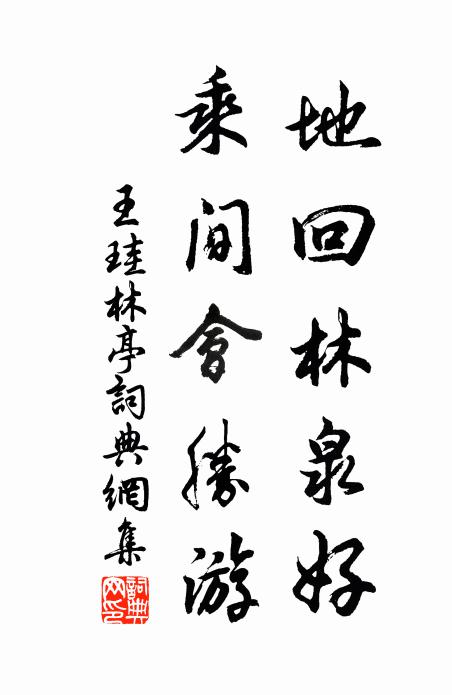 地回林泉好
乘间會勝游
王珪林亭詞典網集
詞典網印